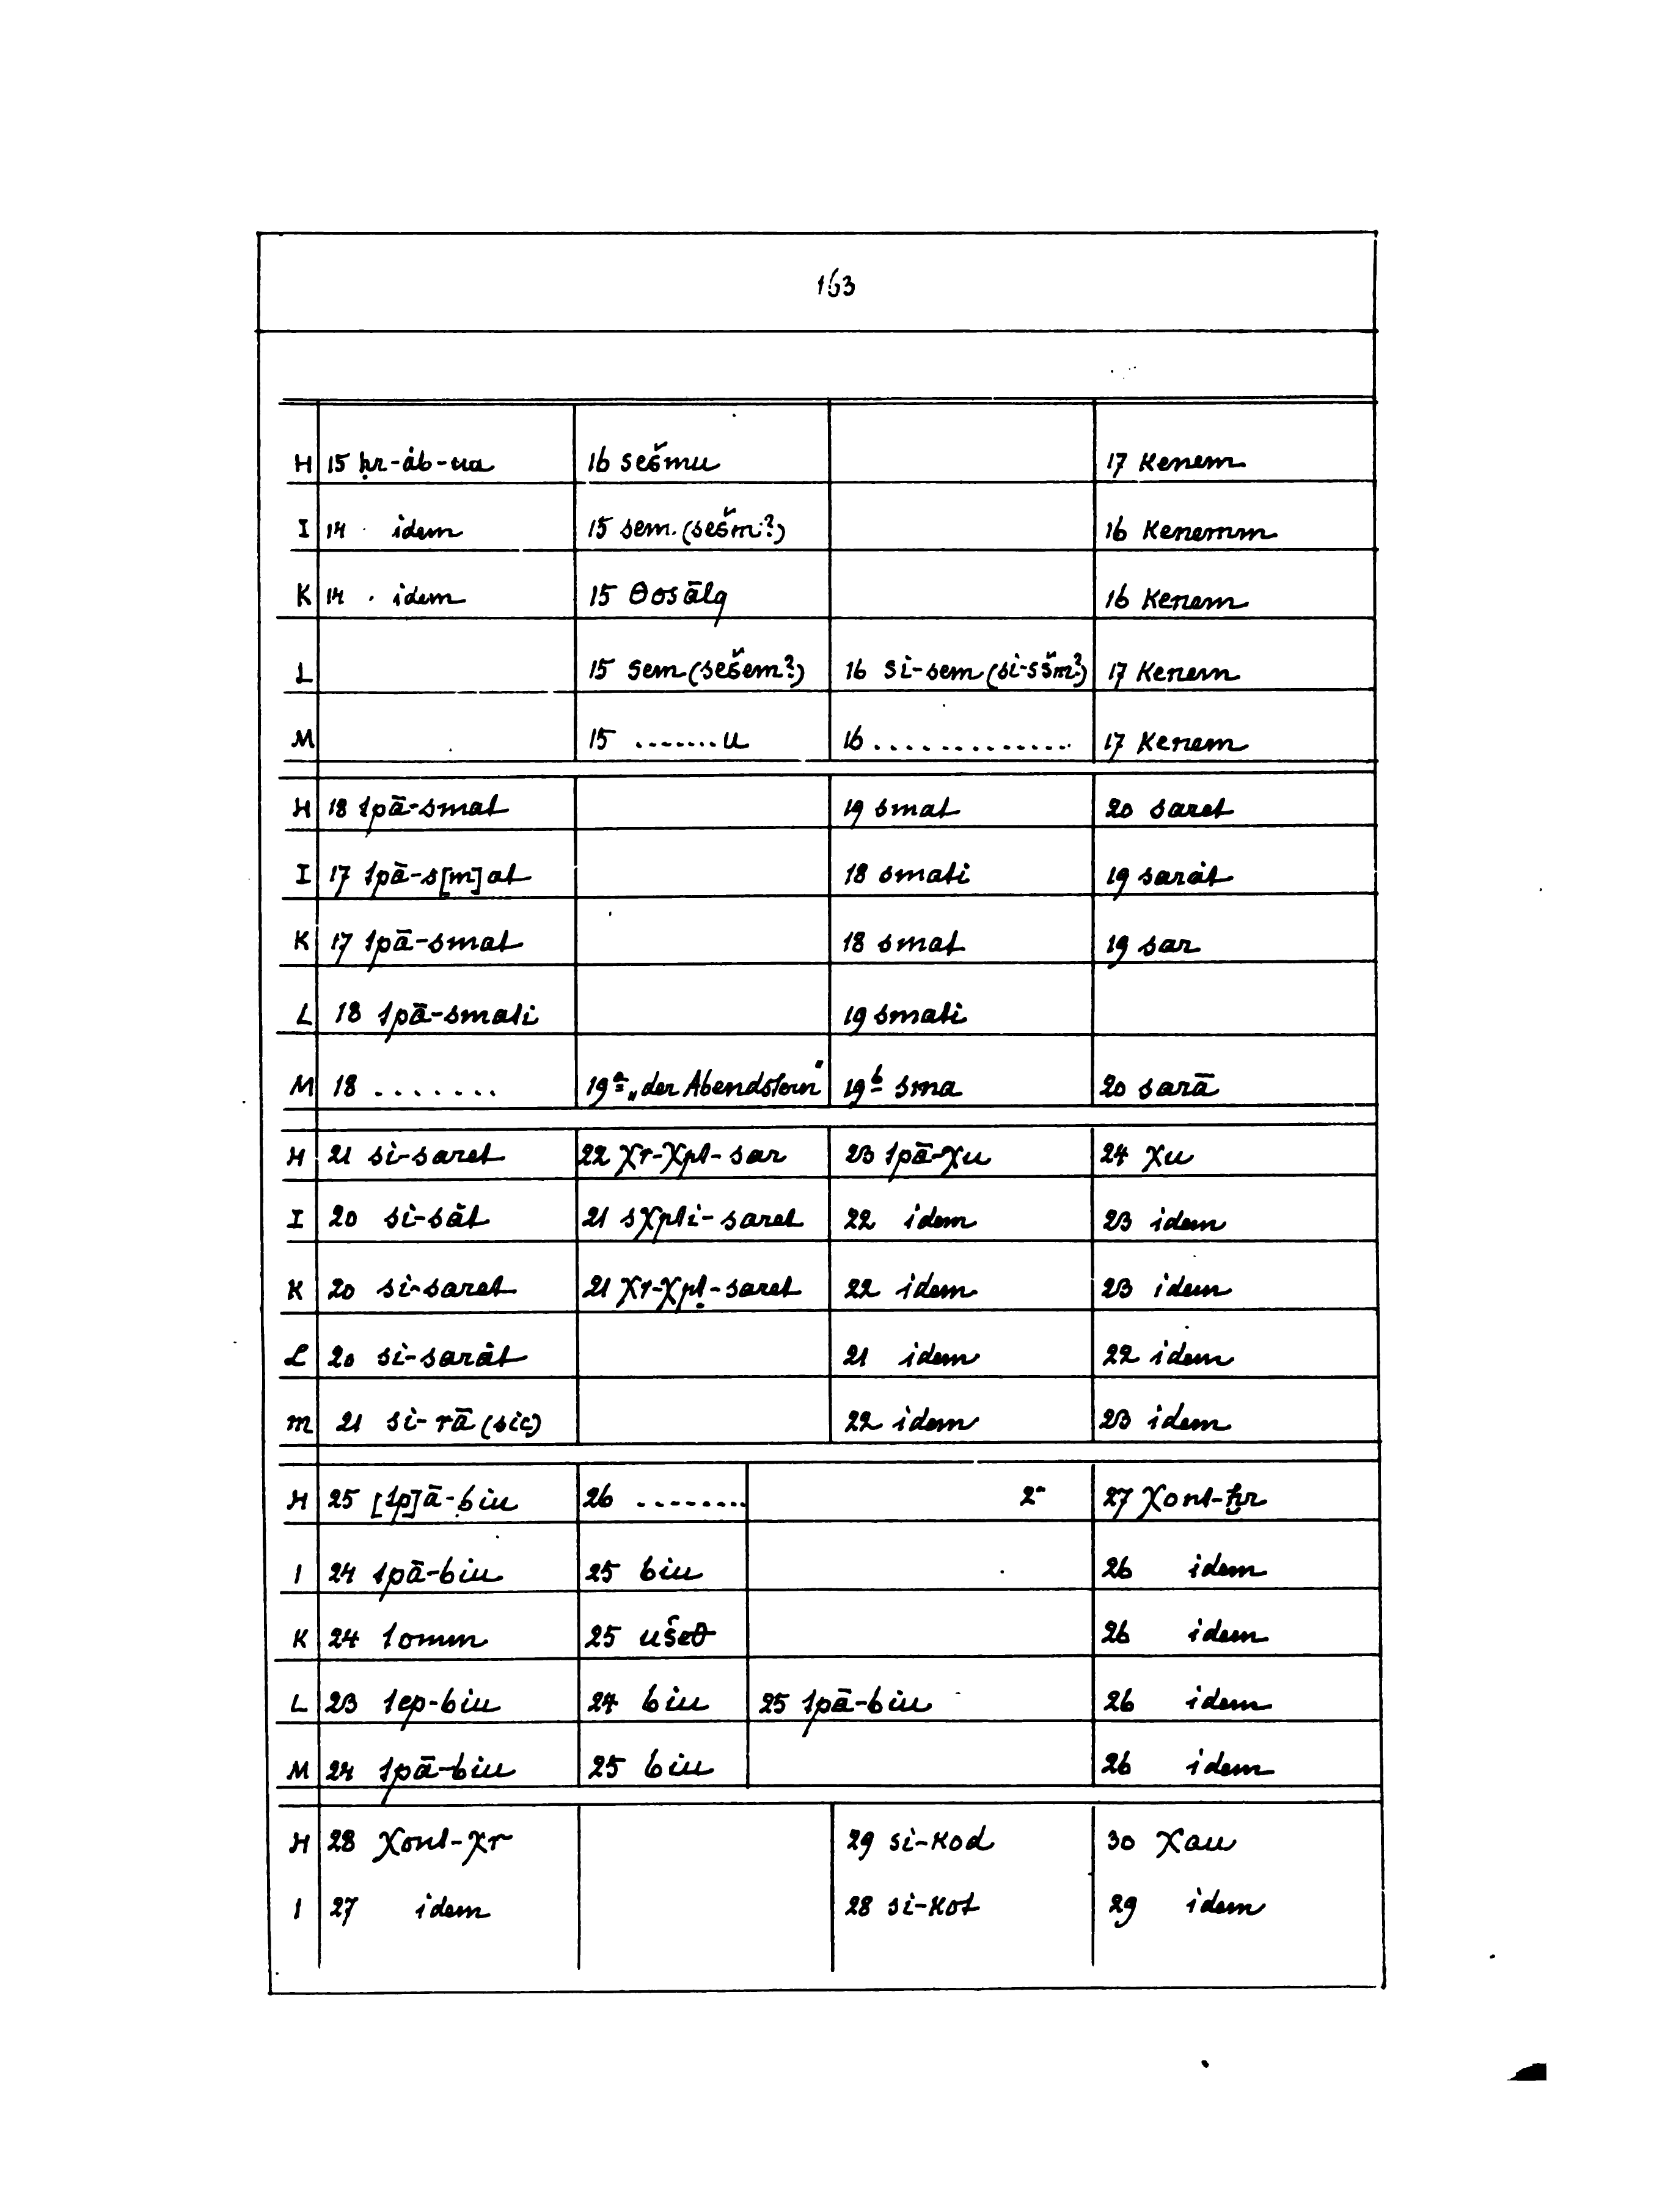 163
H 15 ḥr-àb-ua 16 sešmu 17 Kenem
I 14 idem 15 sem. (sešm?) 16 Kenemm
K 14 idem 15 θosālq 16 Kenem
L 15 sem (sešem?) 16 si-sem (si-sšm?) 17 Kenem
M 15 ........u 16 ............. 17 Kenem
H 18 tpā-smat 19 smat 20 saret
I 17 tpā-s[m]at 18 smati 19 saràt
K 17 tpā-smat 18 smat 19 sar
L 18 tpā-smati 19 smati
M 18 ....... 19ª „der Abendstern" 19ᵇ sma 20 sarā
H 21 si-saret 22 χr-χpt-sar 23 tpā-χu 24 χu
I 20 si-sàt 21 sχpti-saret 22 idem 23 idem
K 20 si-saret 21 χr-χpṭ-saret 22 idem 23 idem
L 20 si-saràt 21 idem 22 idem
M 21 si-rā (sic) 22 idem 23 idem
H 25 [tp]ā-biu 26 ........ 27 χont-ḥr
I 24 tpā-biu 25 biu 26 idem
K 24 tomm 25 ušeθ 26 idem
L 23 tep-biu 24 biu 25 tpā-biu 26 idem
M 24 tpā-biu 25 biu 26 idem
H 28 χont-χr 29 si-kod 30 χau
I 27 idem 28 si-kot 29 idem